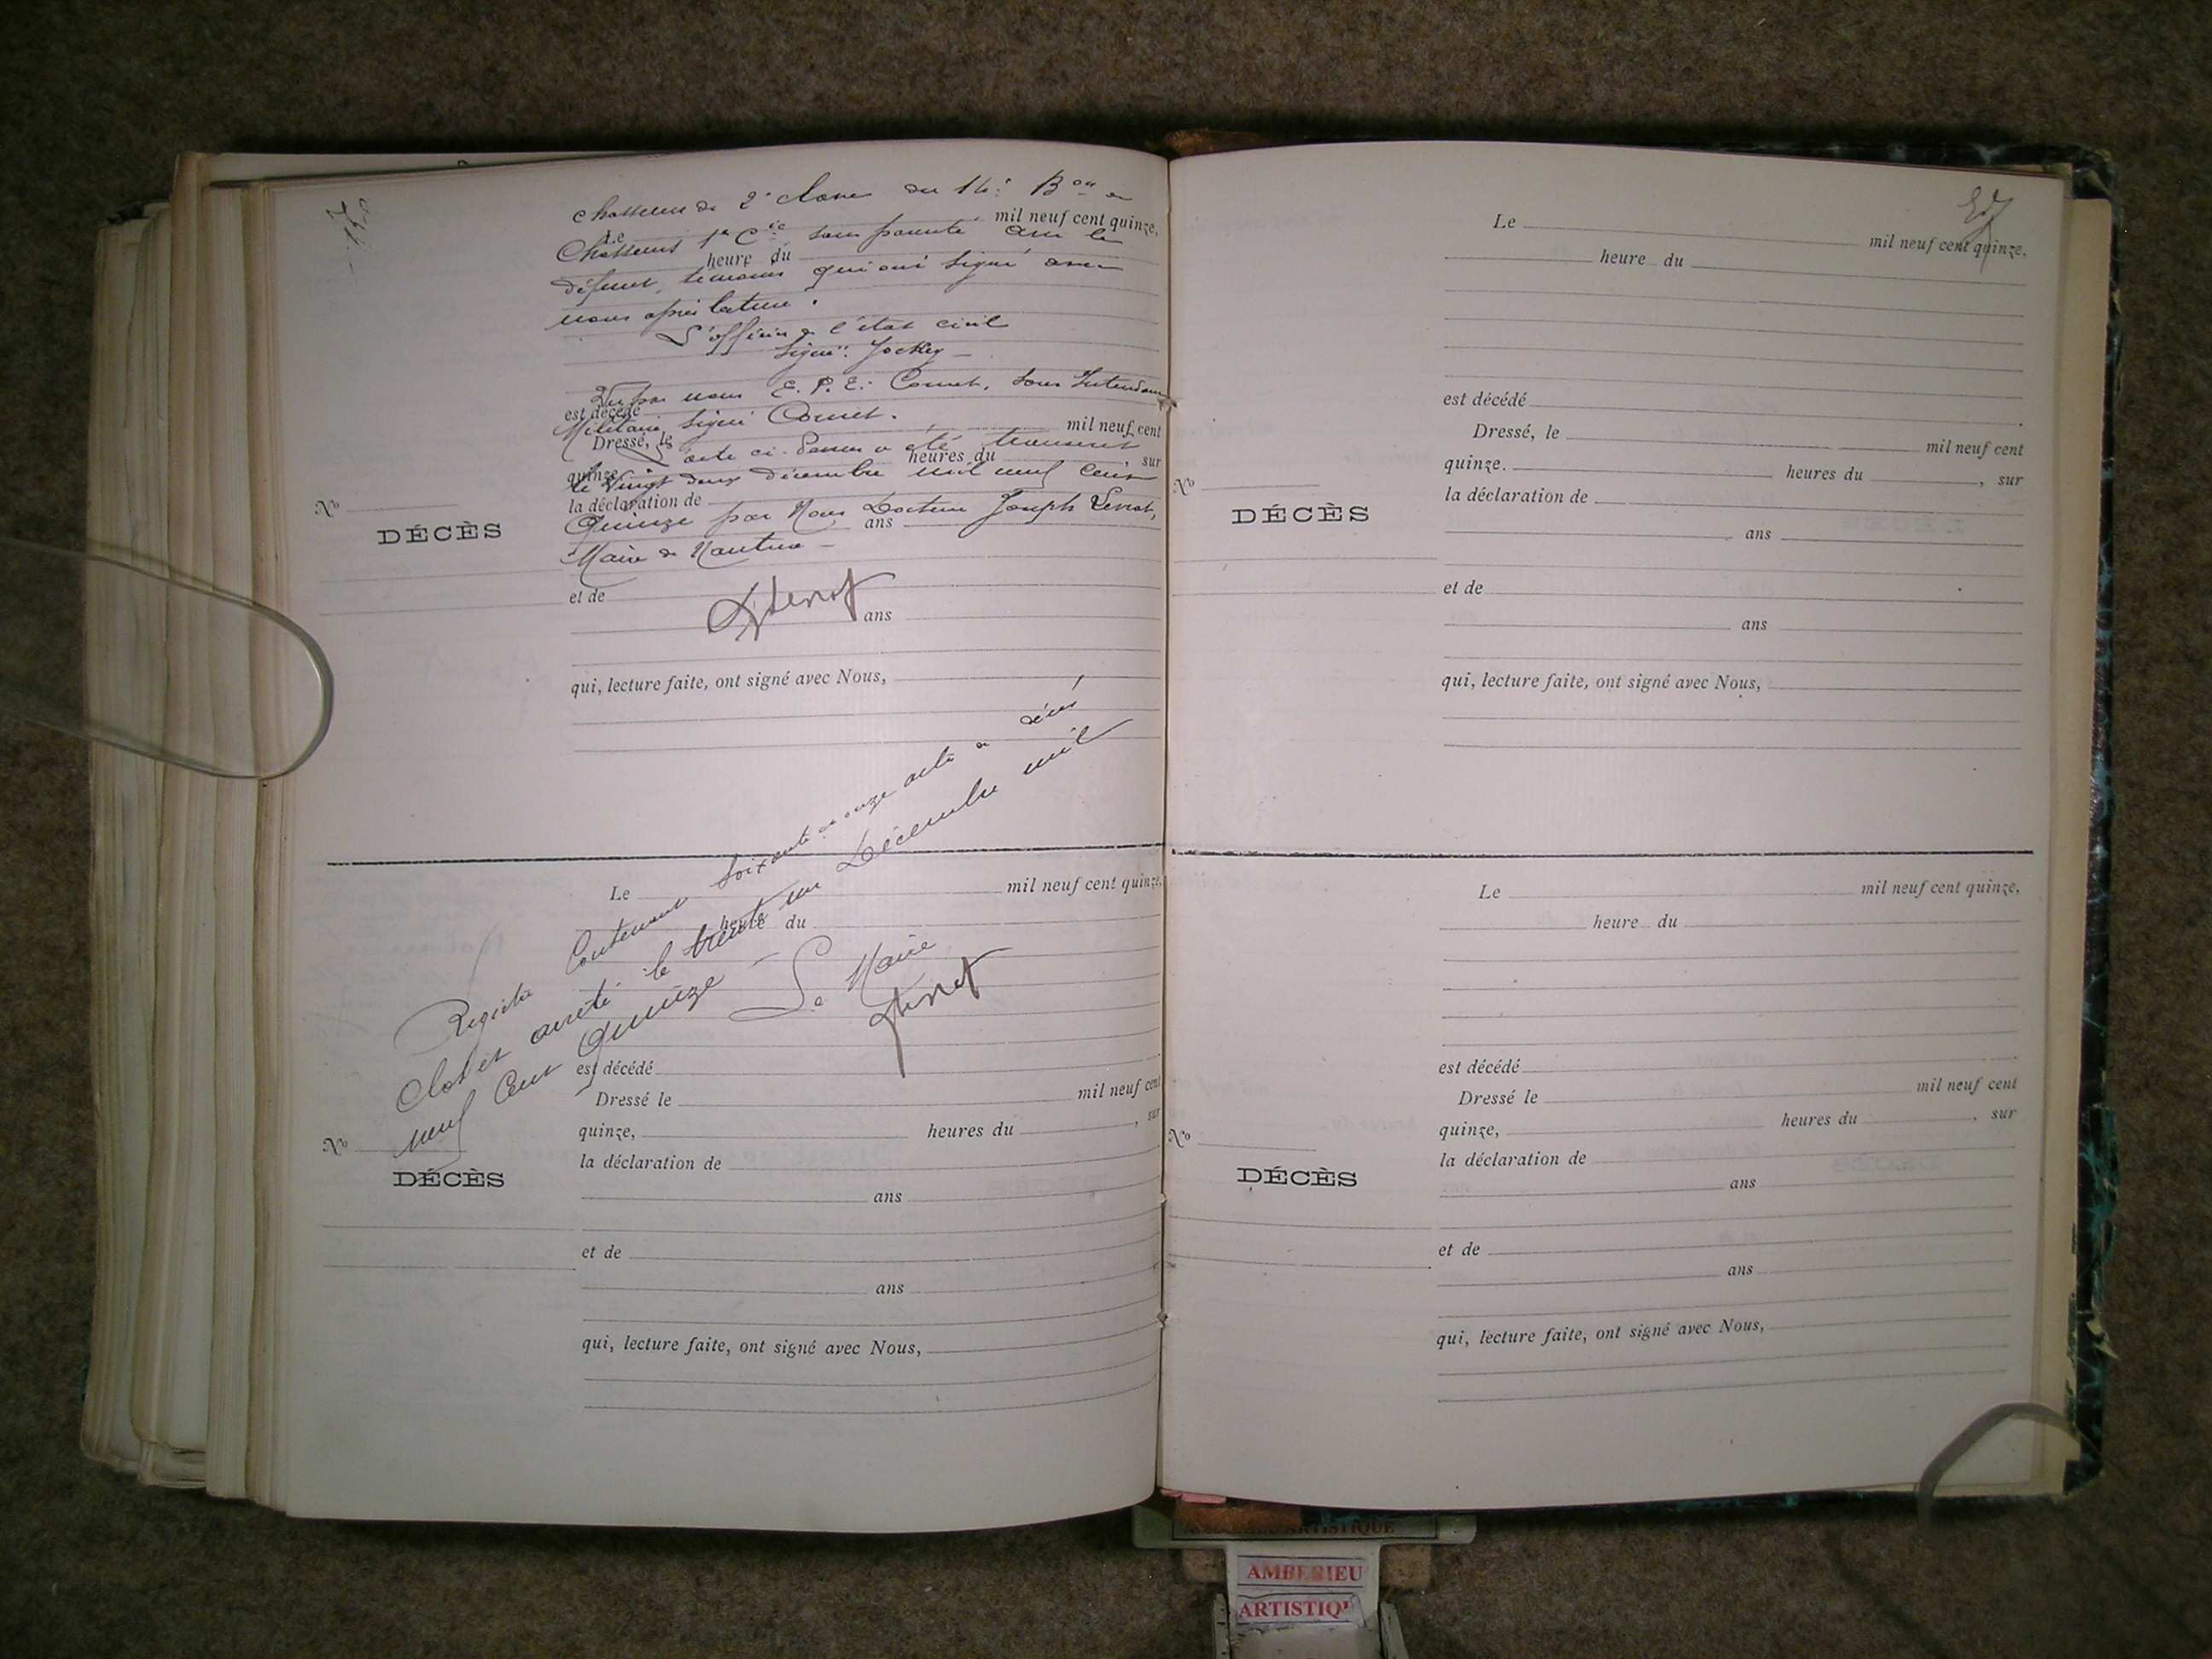 chasseur de 2e classe du 14e Bon de
Le mil neuf cent quinze,
Chasseurs 1e Cie, sans parenté avec le
heure du
défunt, témoins qui ont signé avec
nous après lecture.
L'officier de l'état civil
Signé: Jockey
Vu par nous E. P. E. Cornet, Sous Intendant
est décédé
Militaire signé Cornet.
Dressé, le mil neuf cent
L'acte ci-dessus a été transcrit
quinze heures du sur
le Vingt deux décembre mil neuf cent
la déclaration de
Quinze par Nous Docteur Joseph
ans
Maire de Nantua
et de
ans
qui, lecture faite, ont signé avec Nous,
No
DÉCÈS
Registre Contenant soixante et onze actes de décès
Clos et arrêté le trente un Décembre mil
neuf Cent Quinze
Le Maire
Le mil neuf cent quinze,
heure du
est décédé
Dressé le mil neuf cent
quinze, heures du , sur
No
DÉCÈS
la déclaration de
ans
et de
ans
qui, lecture faite, ont signé avec Nous,
Le mil neuf cent quinze,
heure du
est décédé
Dressé, le mil neuf cent
quinze. heures du , sur
No
la déclaration de
DÉCÈS
ans
et de
ans
qui, lecture faite, ont signé avec Nous,
Le mil neuf cent quinze,
heure du
est décédé
Dressé le mil neuf cent
quinze, heures du , sur
No
la déclaration de
DÉCÈS
ans
et de
ans
qui, lecture faite, ont signé avec Nous,
ARTISTIQUE
AMBERIEU
ARTISTIQ